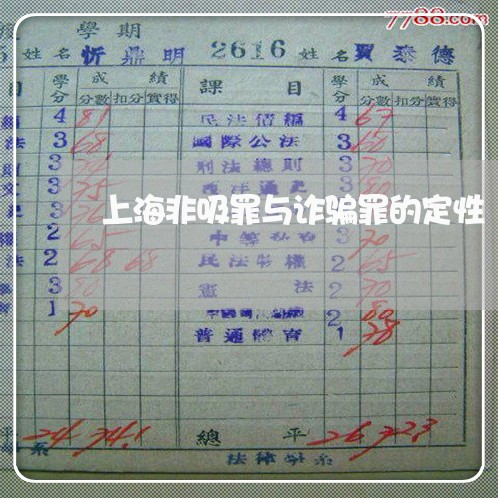 7788.com
學期
姓名 忻鼎明 2616 姓名 賈泰德
目 學分 成績 課目 學分 成績
分數 扣分 實得 分數 扣分 實得
4 81 民法債編 4 67
法 3 68 國際公法 3 60
則 3 刑法總則 3 70
文 3 75 3 80
上海非吸罪与诈骗罪的定性
權 2 65 3 70
法 2 68 68 民法物權 2 65
3 80 憲法 2 70
育 1 70 2 80
普通體育 1 78
平 24 74.1 總平 26 72.3
系 法律學系